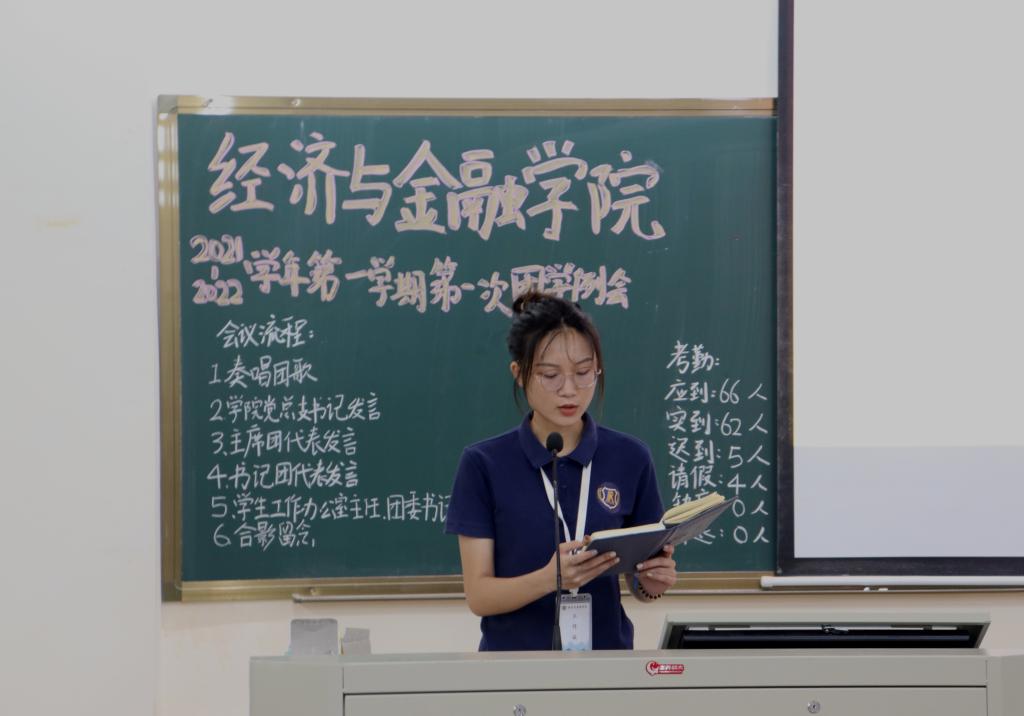 经济与金融学院
2021-2022学年第一学期第一次团学例会
会议流程:
1.奏唱团歌
2.学院党总支书记发言
3.主席团代表发言
4.书记团代表发言
5.学生工作办公室主任.团委书记
6.合影留念
考勤:
应到:66人
实到:62人
迟到:5人
请假:4人
0人
:0人